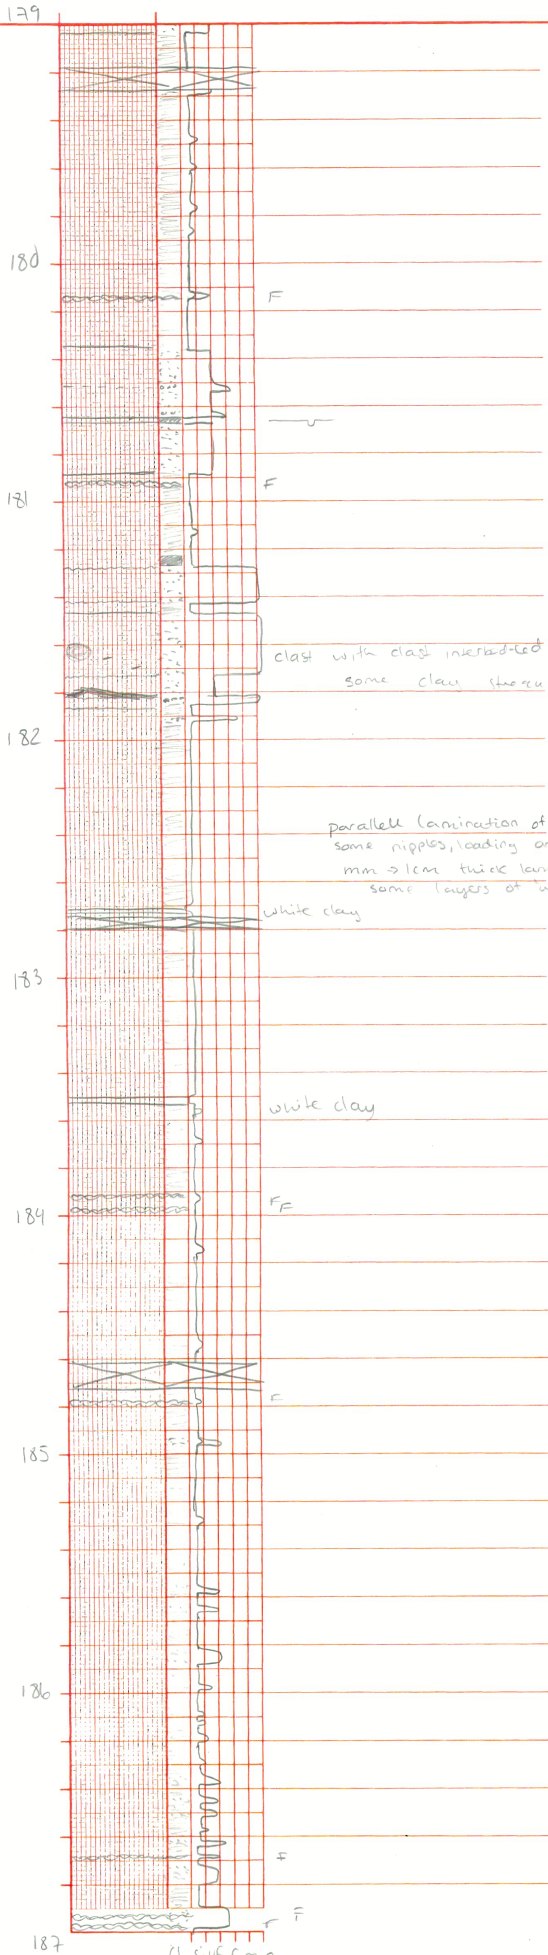 179
180
F
F
181
clast with clast interbedded
some clay
182
parallell lamination of
some ripples, loading
mm → 1cm thick
some layers of
white clay
183
white clay
F
F
184
F
185
186
F
F
F
187
cl si f